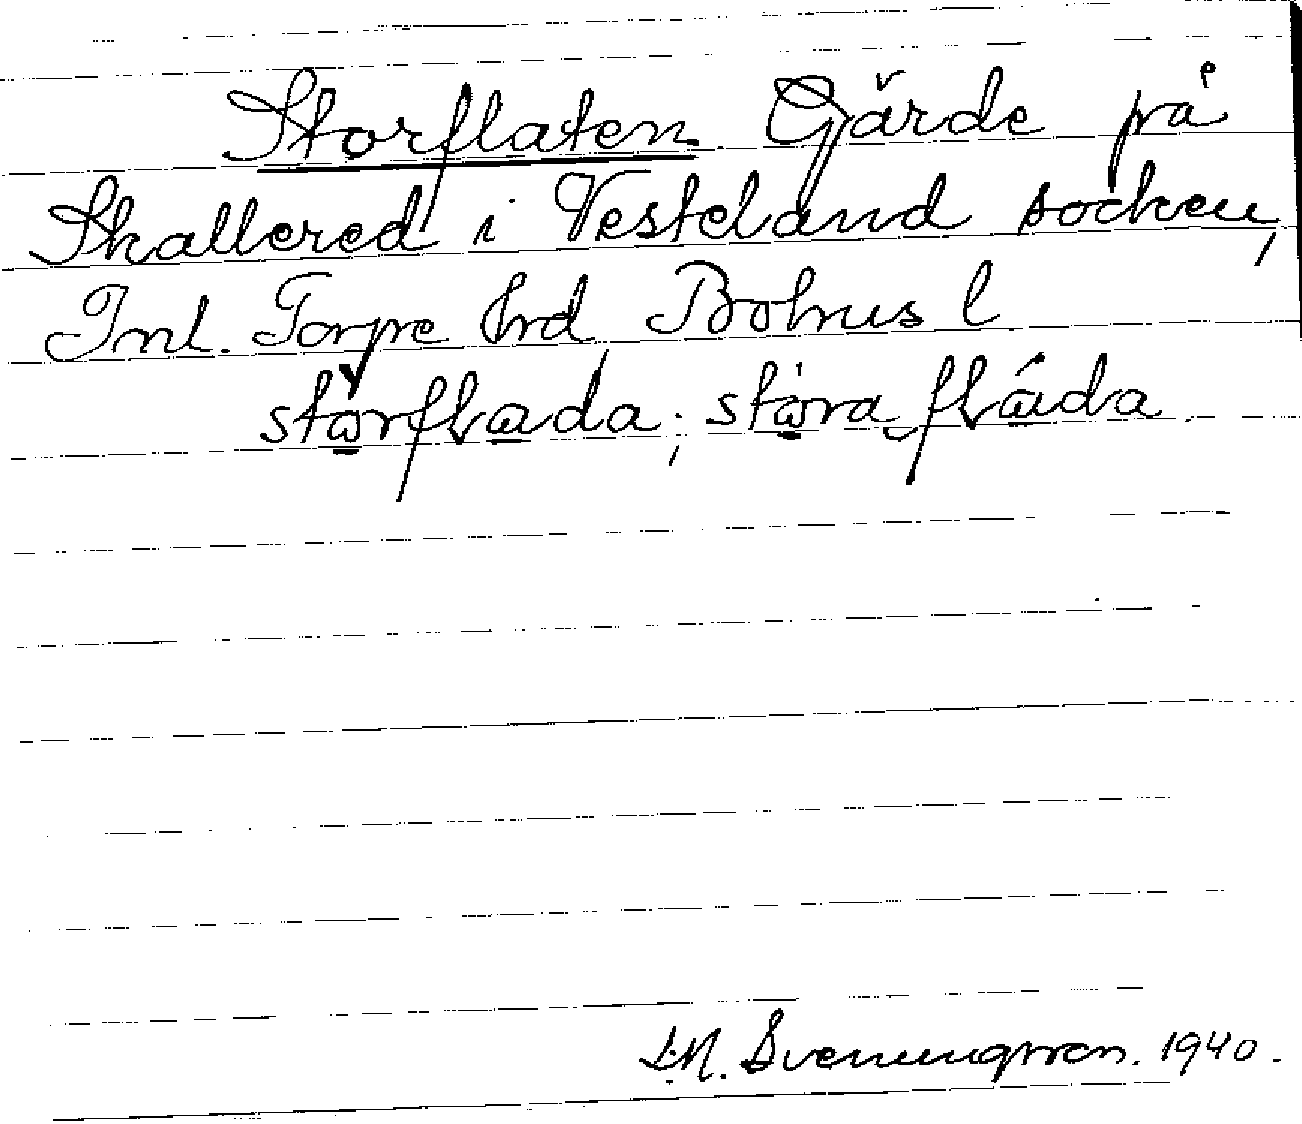 Storflaten Gärde på
Skallered i Vesteland socken,
Inl. Torpe hrd Bohus l
störflada; störa fláda
J.M. Svenungsson. 1940.